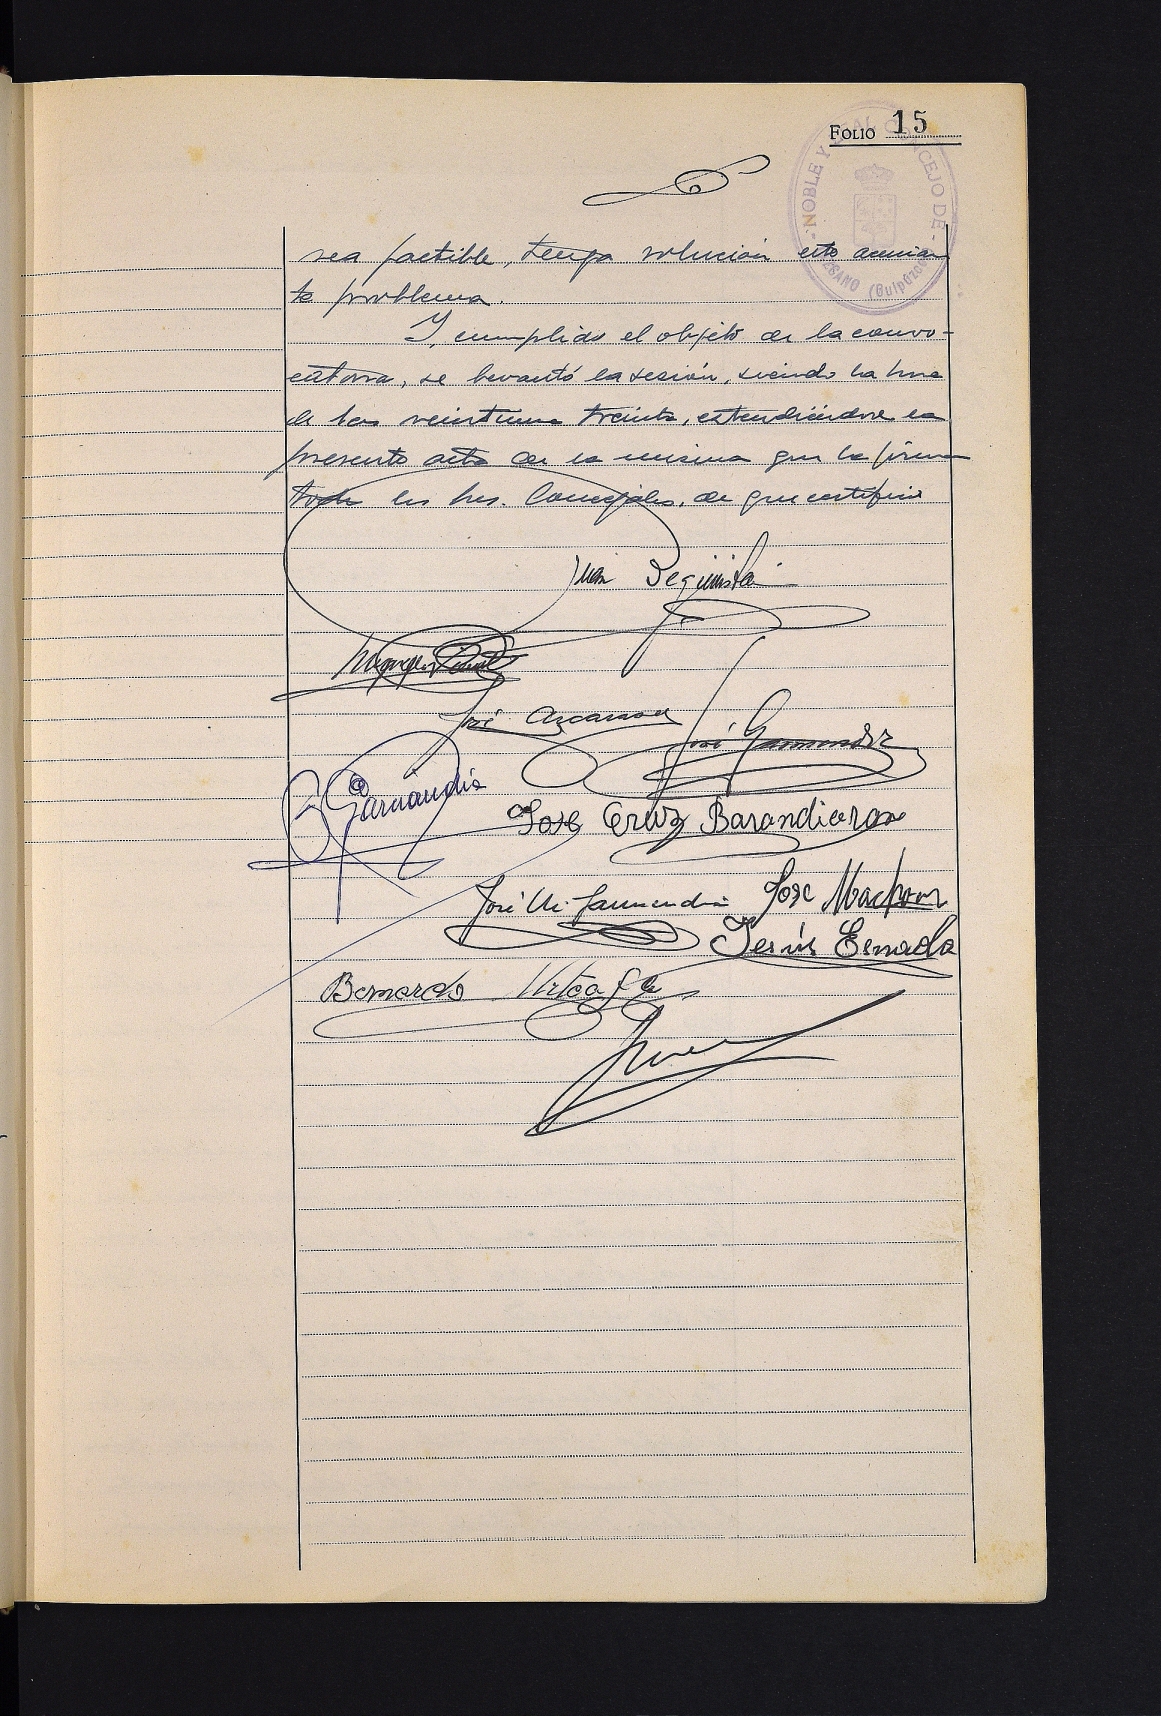 FOLIO 15
NOBLE Y LEAL CONCEJO DE
CEGAMO (Guipúzcoa)
sea factible, tenga solución este acucian
te problema.
Y, cumplido el objeto de la convo-
catoria, se levantó la sesión, siendo la hora
de las veintiuna treinta, extendiéndose la
presente acta de la misma que la firman
todos los Sres. Concejales, de que certifico
Juan
José Azcarra
José Garmendia
Garmendia
Jose Cruz Barandiaran
José Mi. Garmendia Jose
Jesús Esnaola
Bernardo Urteaga